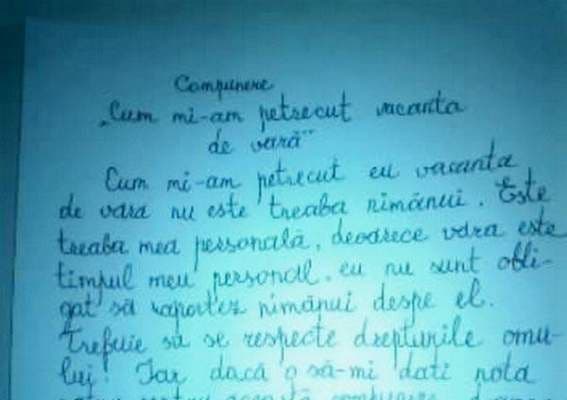 Compunere
„Cum mi-am petrecut vacanta
de vară"
Cum mi-am petrecut eu vacanta
de vara nu este treaba nimănui. Este
treaba mea personală, deoarece vara este
timpul meu personal, eu nu sunt obli-
gat să raportez nimănui despe el.
Trebuie să se respecte drepturile omu-
lui! Iar dacă o să-mi dati nota
pentru această compunere